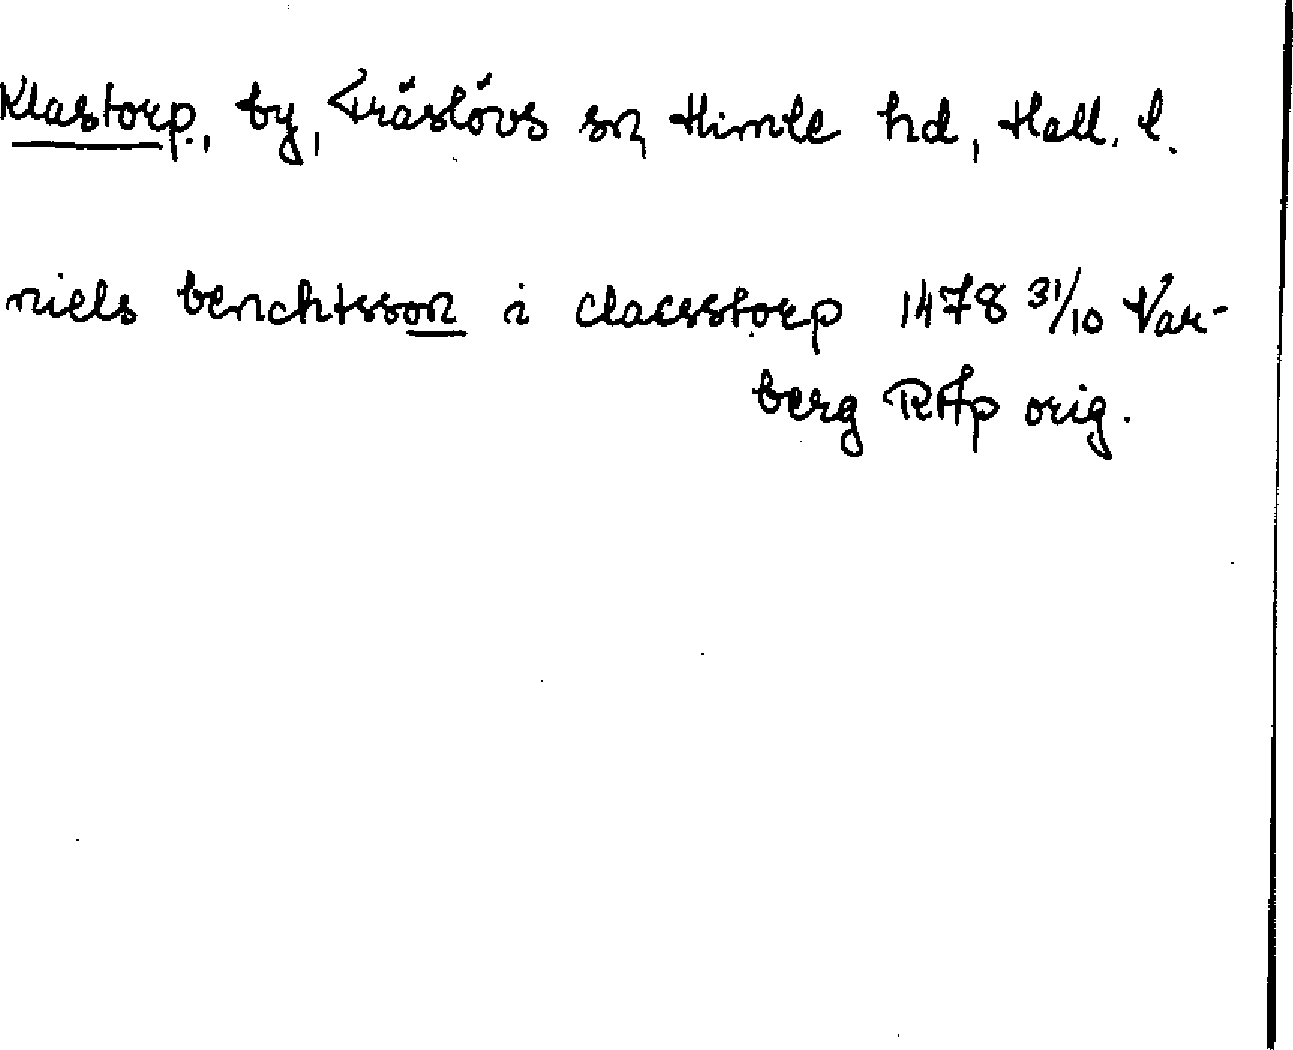 Klastorp, by, Träslövs sn, Himle hd, Hall. l.
niels benchtsson i clacsstorp 1478 31/10 Var-
berg RAp orig.